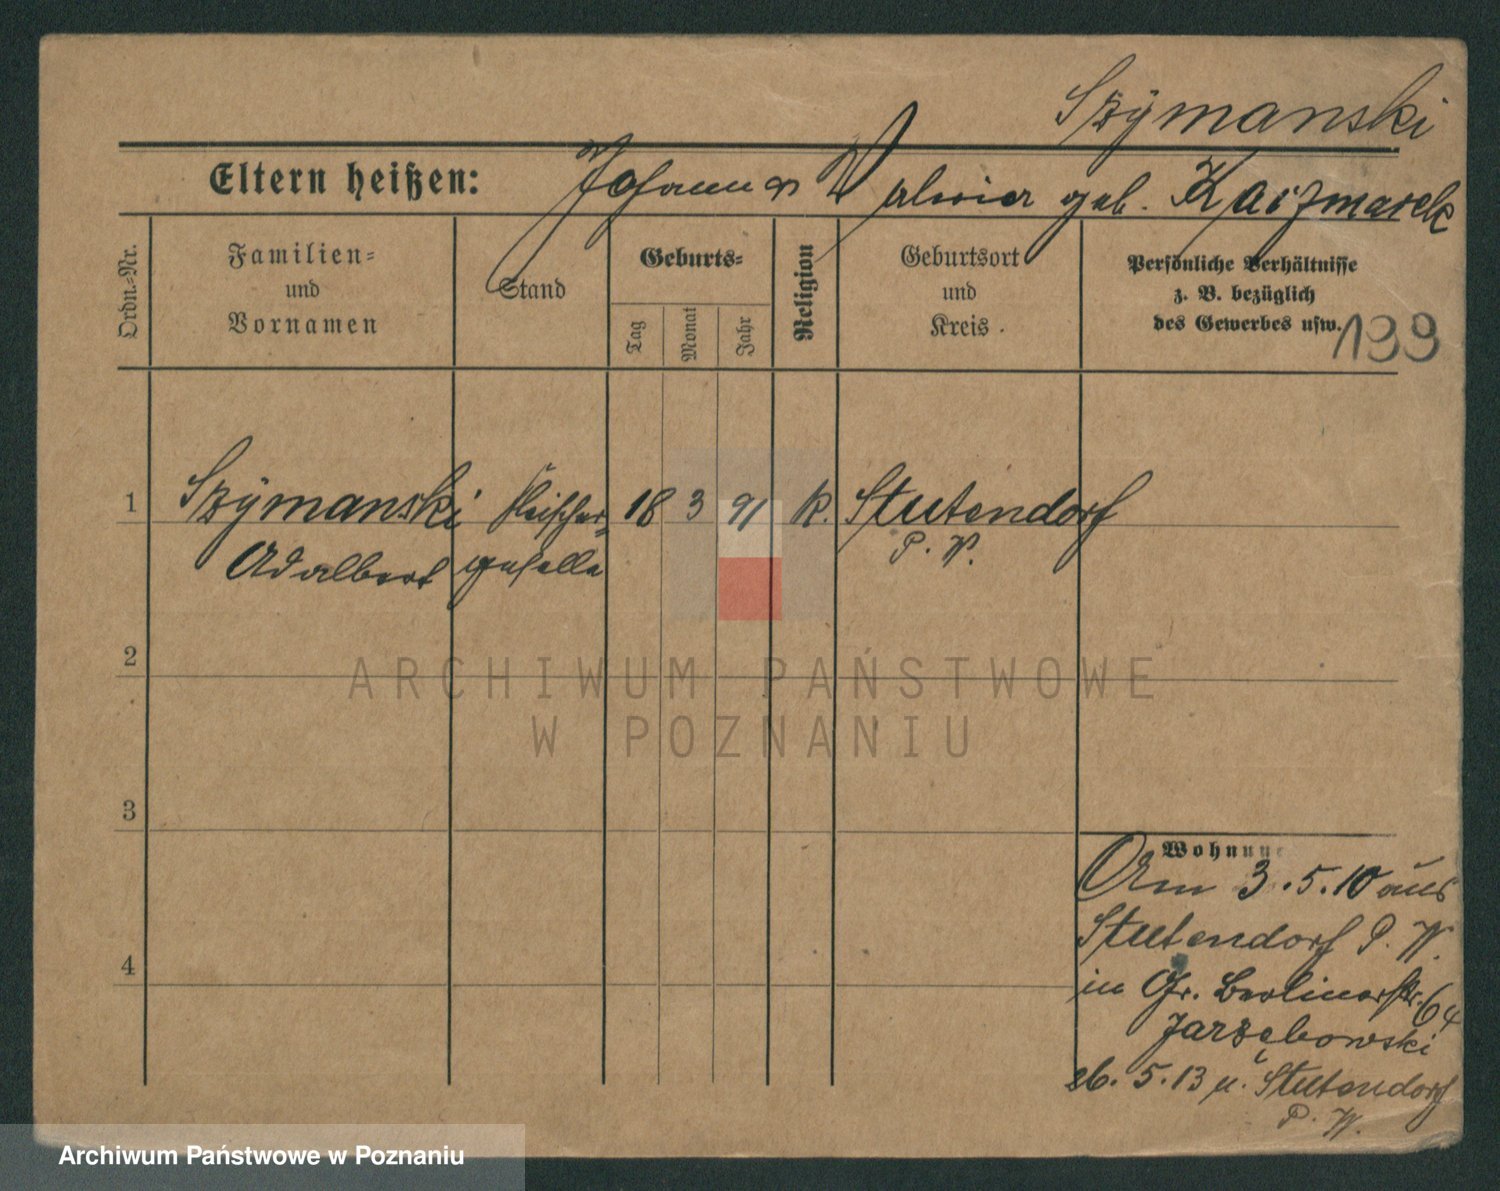 Szymanski
Eltern heißen: Johann u Valerier geb. Kaczmarek
Ordn.-Nr.
Familien-
und
Vornamen
Stand
Geburts-
Tag
Monat
Jahr
Religion
Geburtsort
und
Kreis.
Persönliche Verhältnisse
z. B. bezüglich
des Gewerbes usw.
139
1 Szymanski Fleischer- 18 3 91 k. Stutendorf
Adalbert geselle P. W.
2
3
4
Wohnung
Am 3.5.10 aus
Stutendorf P. W.
in Gr. Berlinerstr. 64
Jarzębowski
5.13 n. Stutendorf
P. W.
ARCHIWUM PAŃSTWOWE
W POZNANIU
Archiwum Państwowe w Poznaniu